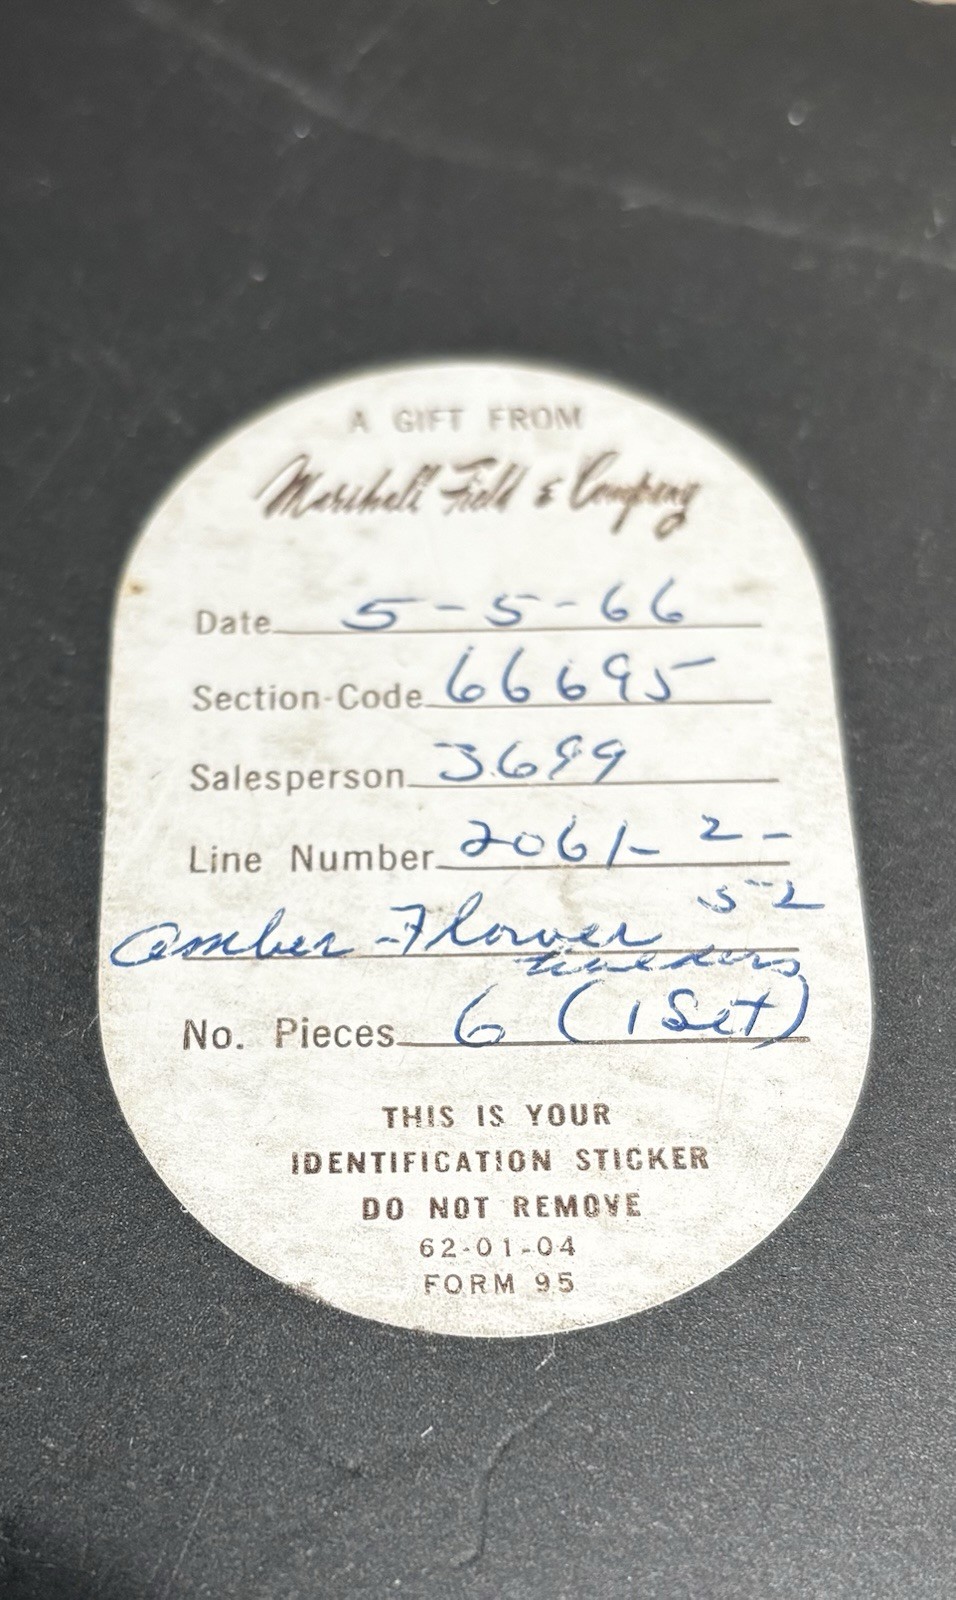 A GIFT FROM
Marshall Field & Company
Date 5-5-66
Section-Code 66695
Salesperson 3699
Line Number 2061- 2-
52
Amber-Flower
No. Pieces 6 (1 Set)
THIS IS YOUR
IDENTIFICATION STICKER
DO NOT REMOVE
62-01-04
FORM 95